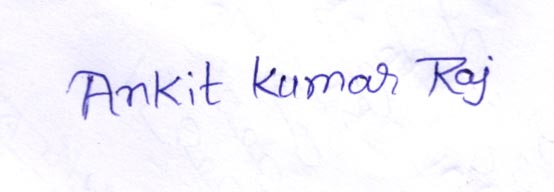 Ankit Kumar Raj